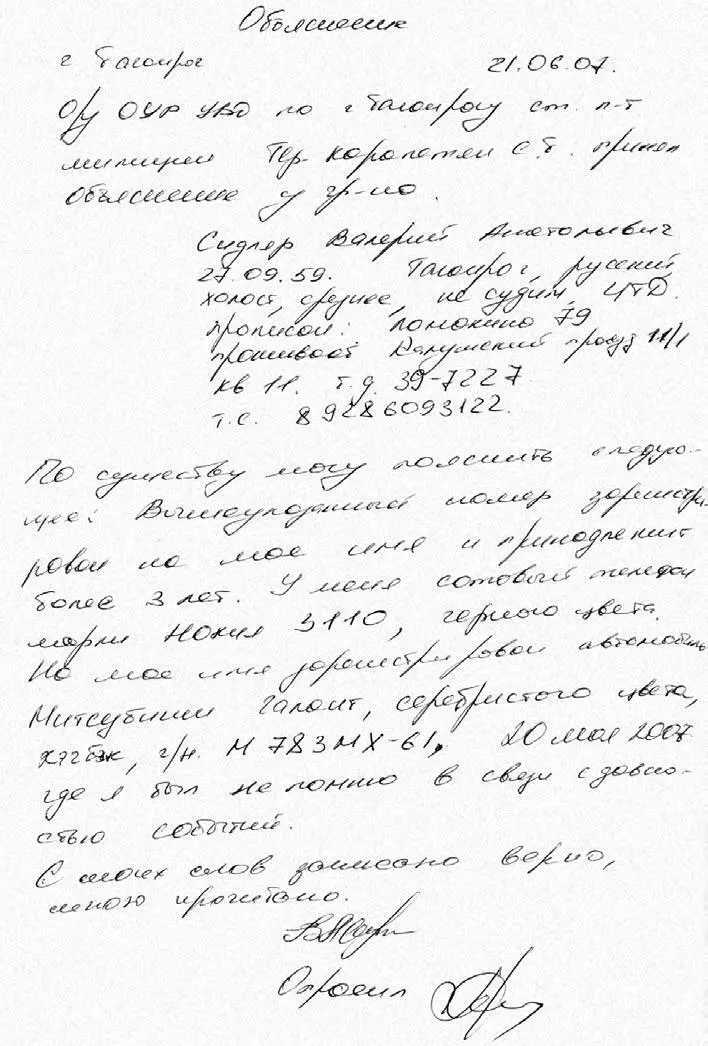 Объяснение
г Таганрог 21.06.07.
О/у ОУР УВД по г Таганрогу ст. л-т
милиции Тер-Карапетян С.Т. принял
Объяснение у гр-на
Сидлер Валерий Анатольевич
27.09.59. Таганрог, русский,
холост, среднее, не судим, ЧТД.
прописан: Ломакина 79
проживает Калужский проезд 11/1
кв 11. т.д. 39-7227
т.с. 89286093122.
По существу могу пояснить следую-
щее: Вышеуказанный номер зарегистри-
рован на мое имя и принадлежит
более 3 лет. У меня сотовый телефон
марки Нокия 3110, черного цвета.
На мое имя зарегистрирован автомобиль
Митсубиши Галант, серебристого цвета,
хэтбэк, г/н. М 783 МХ-61, 20 мая 2007
где я был не помню в связи с давно-
стью событий.
С моих слов записано верно,
мною прочитано.
Опросил